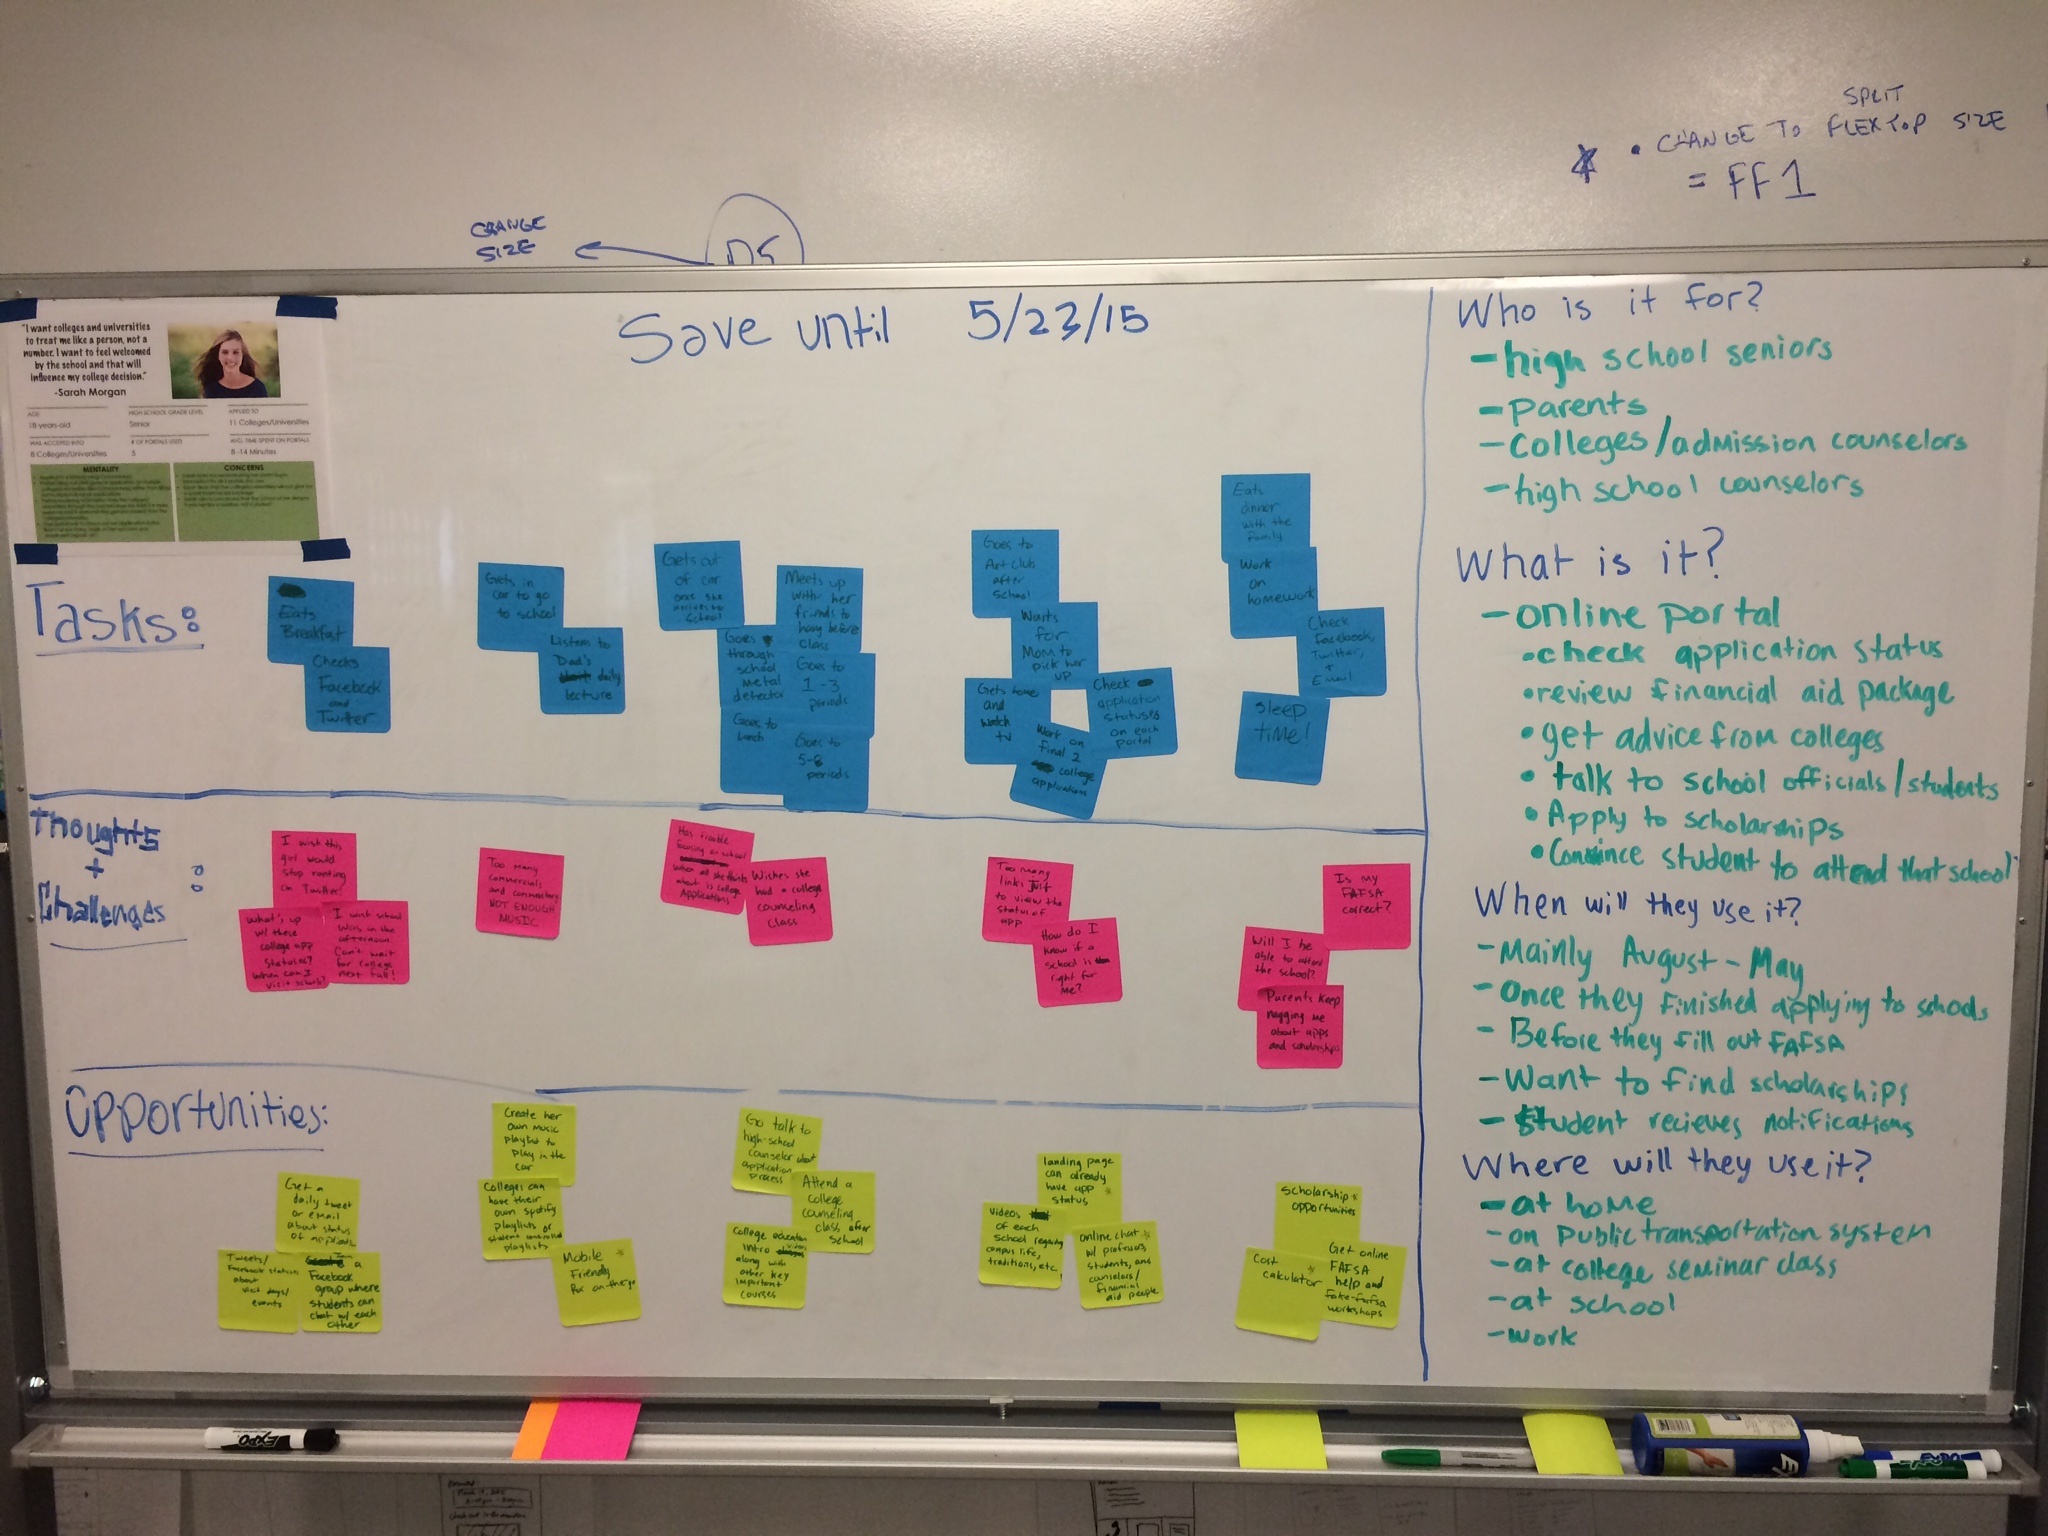 SPLIT
* • CHANGE TO FLEXTOP SIZE
= FF1
CHANGE
SIZE
Save until 5/23/15
"I want colleges and universities
to treat me like a person, not a
number. I want to feel welcomed
by the school and that will
influence my college decision."
-Sarah Morgan
AGE
18-years-old
HIGH SCHOOL GRADE LEVEL
Senior
APPLIED TO
11 Colleges/Universities
WAS ACCEPTED INTO
8 Colleges/Universities
# OF PORTALS USED
5
AVG. TIME SPENT ON PORTALS
8-14 Minutes
MENTALITY
CONCERNS
Tasks:
Eats
Breakfast
Checks
Facebook
and
Twitter
Gets in
car to go
to school
Listens to
Dad's
daily
lecture
Gets out
of car
once she
arrives to
school
Meets up
with her
friends to
hang before
class
Goes
through
school
metal
detector
Goes to
1-3
periods
Goes to
lunch
Goes to
5-8
periods
Goes to
Art club
after
school
Waits
for
Mom to
pick her
up
Gets home
and
watch
tv
Check
application
statuses
on each
portal
Work on
final 2
college
applications
Eats
dinner
with the
family
Work
on
homework
Check
Facebook,
Twitter,
+
Email
Sleep
time!
Thoughts
+
Challenges :
I wish this
girl would
stop ranting
on Twitter!
What's up
w/ these
college app
status?
When can I
visit schools?
I wish school
was in the
afternoon.
Can't wait
for college
next fall!
Too many
commercials
and commentary
NOT ENOUGH
MUSIC
Has trouble
focusing on school
when all she thinks
about is college
Applications
Wishes she
had a college
counseling
class
Too many
links just
to view the
status of
app
How do I
know if a
school is
right for
me?
Is my
FAFSA
correct?
Will I be
able to afford
the school?
Parents keep
nagging me
about apps
and scholarships
Opportunities:
Get a
daily tweet
or email
about status
of
Tweets/
Facebook statuses
about
visit days/
events
a
Facebook
group where
students can
chat w/ each
other
Create her
own music
playlist to
play in the
car
Colleges can
have their
own spotify
playlists or
student
playlists
Mobile *
Friendly
for on-the-go
Go talk to
high-school
counselor about
application
process
Attend a
college
counseling
class after
school
College education
intro videos
along with
other key
important
courses
landing page
can already
have app *
status
Videos
of each
school regarding
campus life,
traditions, etc.
online chat *
w/ professors,
students, and
counselors/
financial
aid people
Scholarship *
opportunities
Cost *
calculator
Get online
FAFSA
help and
fake-fafsa
workshops
Who is it for?
- high school seniors
- Parents
- Colleges/admission counselors
- high school counselors
What is it?
- online portal
• check application status
• review financial aid package
• get advice from colleges
• talk to school officials/students
• Apply to scholarships
• Convince student to attend that school
When will they use it?
- Mainly August - May
- Once they finished applying to schools
- Before they fill out FAFSA
- Want to find scholarships
- Student recieves notifications
Where will they use it?
- at home
- on Public transportation system
- at college seminar class
- at school
- work
EXPO